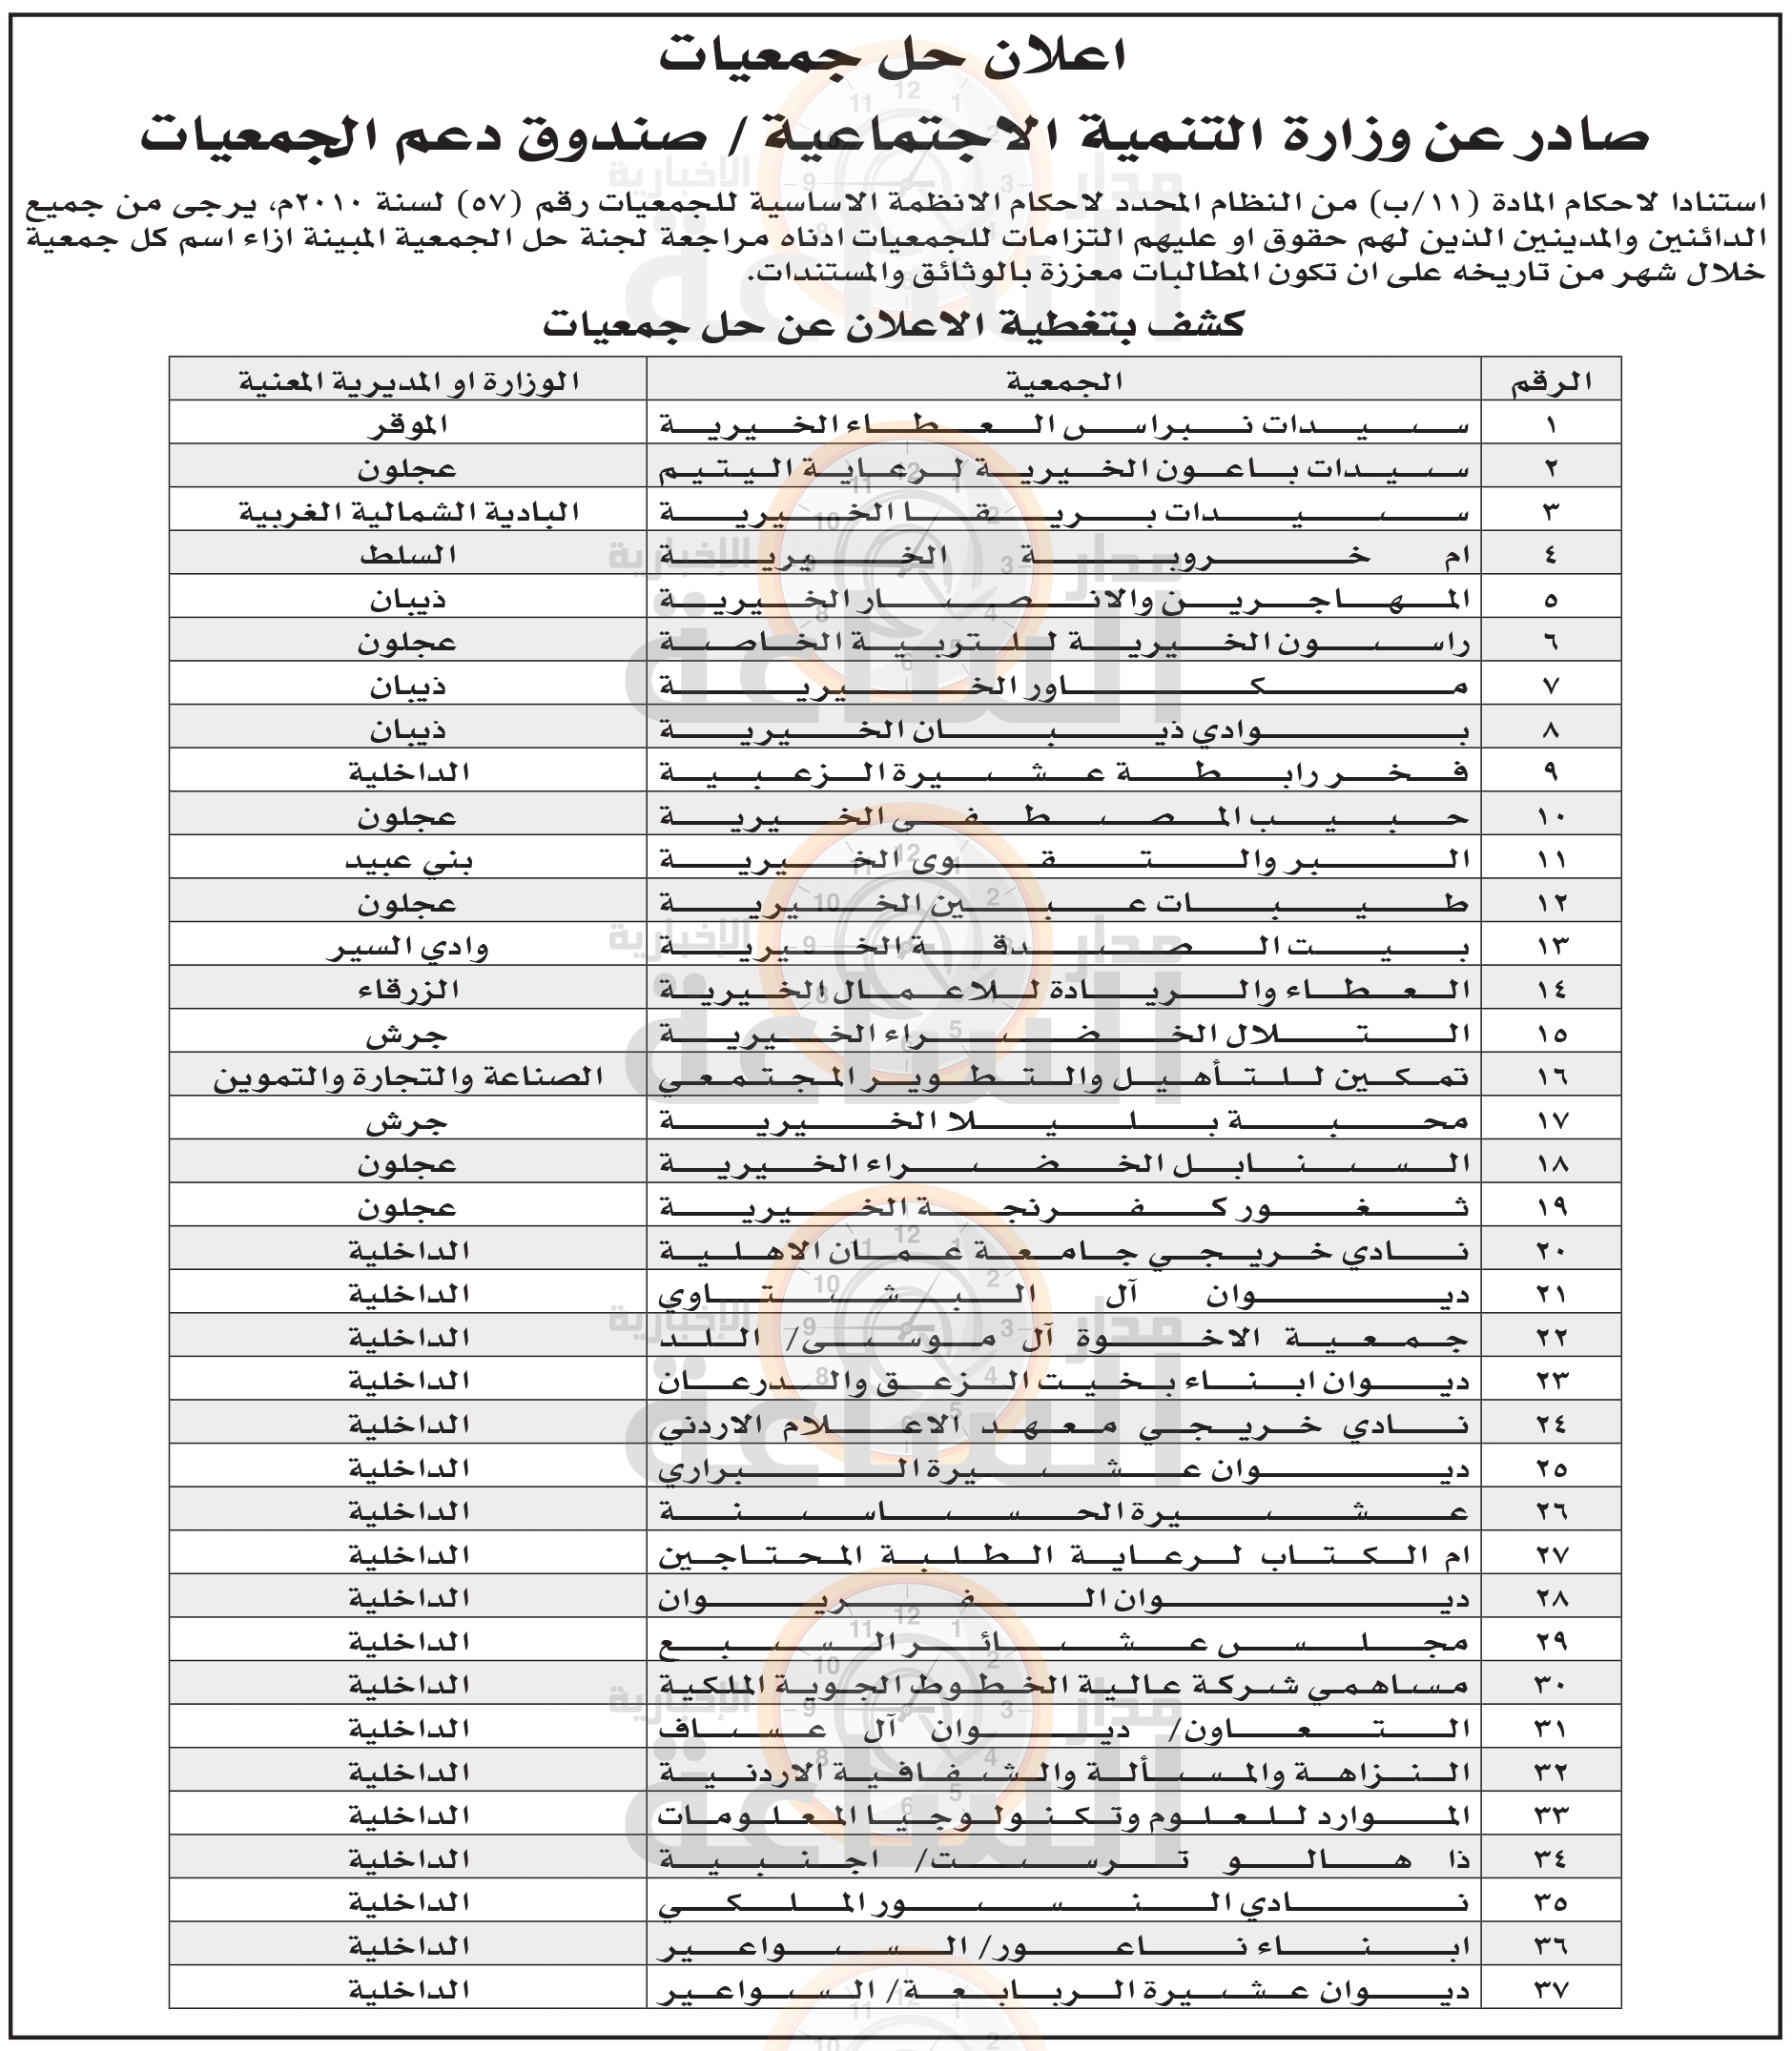 اعلان حل جمعيات
صادر عن وزارة التنمية الاجتماعية / صندوق دعم الجمعيات
استنادا لاحكام المادة (١١/ب) من النظام المحدد لاحكام الانظمة الاساسية للجمعيات رقم (٥٧) لسنة ٢٠١٠م، يرجى من جميع
الدائنين والمدينين الذين لهم حقوق او عليهم التزامات للجمعيات ادناه مراجعة لجنة حل الجمعية المبينة ازاء اسم كل جمعية
خلال شهر من تاريخه على ان تكون المطالبات معززة بالوثائق والمستندات.
كشف بتغطية الاعلان عن حل جمعيات
الرقم الجمعية الوزارة او المديرية المعنية
١ سيدات نبراس العطاء الخيرية الموقر
٢ سيدات باعون الخيرية لرعاية اليتيم عجلون
٣ سيدات بريقا الخيرية البادية الشمالية الغربية
٤ ام خروبة الخيرية السلط
٥ المهاجرين والانصار الخيرية ذيبان
٦ راسون الخيرية للتربية الخاصة عجلون
٧ مكاور الخيرية ذيبان
٨ بوادي ذيبان الخيرية ذيبان
٩ فخر رابطة عشيرة الزعبية الداخلية
١٠ حبيب المصطفى الخيرية عجلون
١١ البر والتقوى الخيرية بني عبيد
١٢ طيبات عبين الخيرية عجلون
١٣ بيت الصدقة الخيرية وادي السير
١٤ العطاء والريادة للاعمال الخيرية الزرقاء
١٥ التلال الخضراء الخيرية جرش
١٦ تمكين للتأهيل والتطوير المجتمعي الصناعة والتجارة والتموين
١٧ محبة بليلا الخيرية جرش
١٨ السنابل الخضراء الخيرية عجلون
١٩ ثغور كفرنجة الخيرية عجلون
٢٠ نادي خريجي جامعة عمان الاهلية الداخلية
٢١ ديوان آل البشتاوي الداخلية
٢٢ جمعية الاخوة آل موسى/ اللد الداخلية
٢٣ ديوان ابناء بخيت الزعق والدرعان الداخلية
٢٤ نادي خريجي معهد الاعلام الاردني الداخلية
٢٥ ديوان عشيرة البراري الداخلية
٢٦ عشيرة الحساسنة الداخلية
٢٧ ام الكتاب لرعاية الطلبة المحتاجين الداخلية
٢٨ ديوان الفريوان الداخلية
٢٩ مجلس عشائر السبع الداخلية
٣٠ مساهمي شركة عالية الخطوط الجوية الملكية الداخلية
٣١ التعاون/ ديوان آل عساف الداخلية
٣٢ النزاهة والمسألة والشفافية الاردنية الداخلية
٣٣ الموارد للعلوم وتكنولوجيا المعلومات الداخلية
٣٤ ذا هالو ترست/ اجنبية الداخلية
٣٥ نادي النسور الملكي الداخلية
٣٦ ابناء ناعور/ السواعير الداخلية
٣٧ ديوان عشيرة الربابعة/ السواعير الداخلية
مدار الساعة الإخبارية